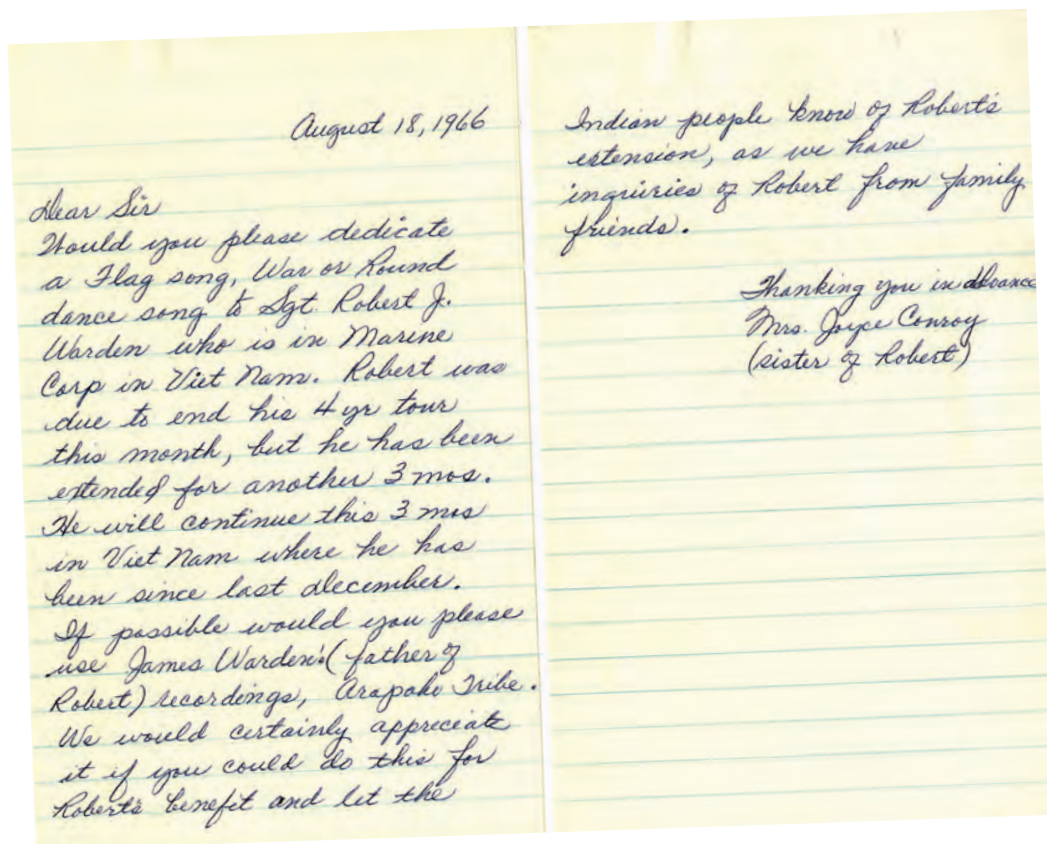 August 18, 1966
Dear Sir
Would you please dedicate
a Flag song, War or Round
dance song to Sgt. Robert J.
Warden who is in Marine
Corp in Viet Nam. Robert was
due to end his 4 yr tour
this month, but he has been
extended for another 3 mos.
He will continue this 3 mos
in Viet Nam where he has
been since last December.
If possible would you please
use James Warden's (father of
Robert) recordings, Arapaho Tribe.
We would certainly appreciate
it if you could do this for
Robert's benefit and let the
Indian people know of Robert's
extension, as we have
inquiries of Robert from family
friends.
Thanking you in advance
Mrs. Joyce Conroy
(sister of Robert)